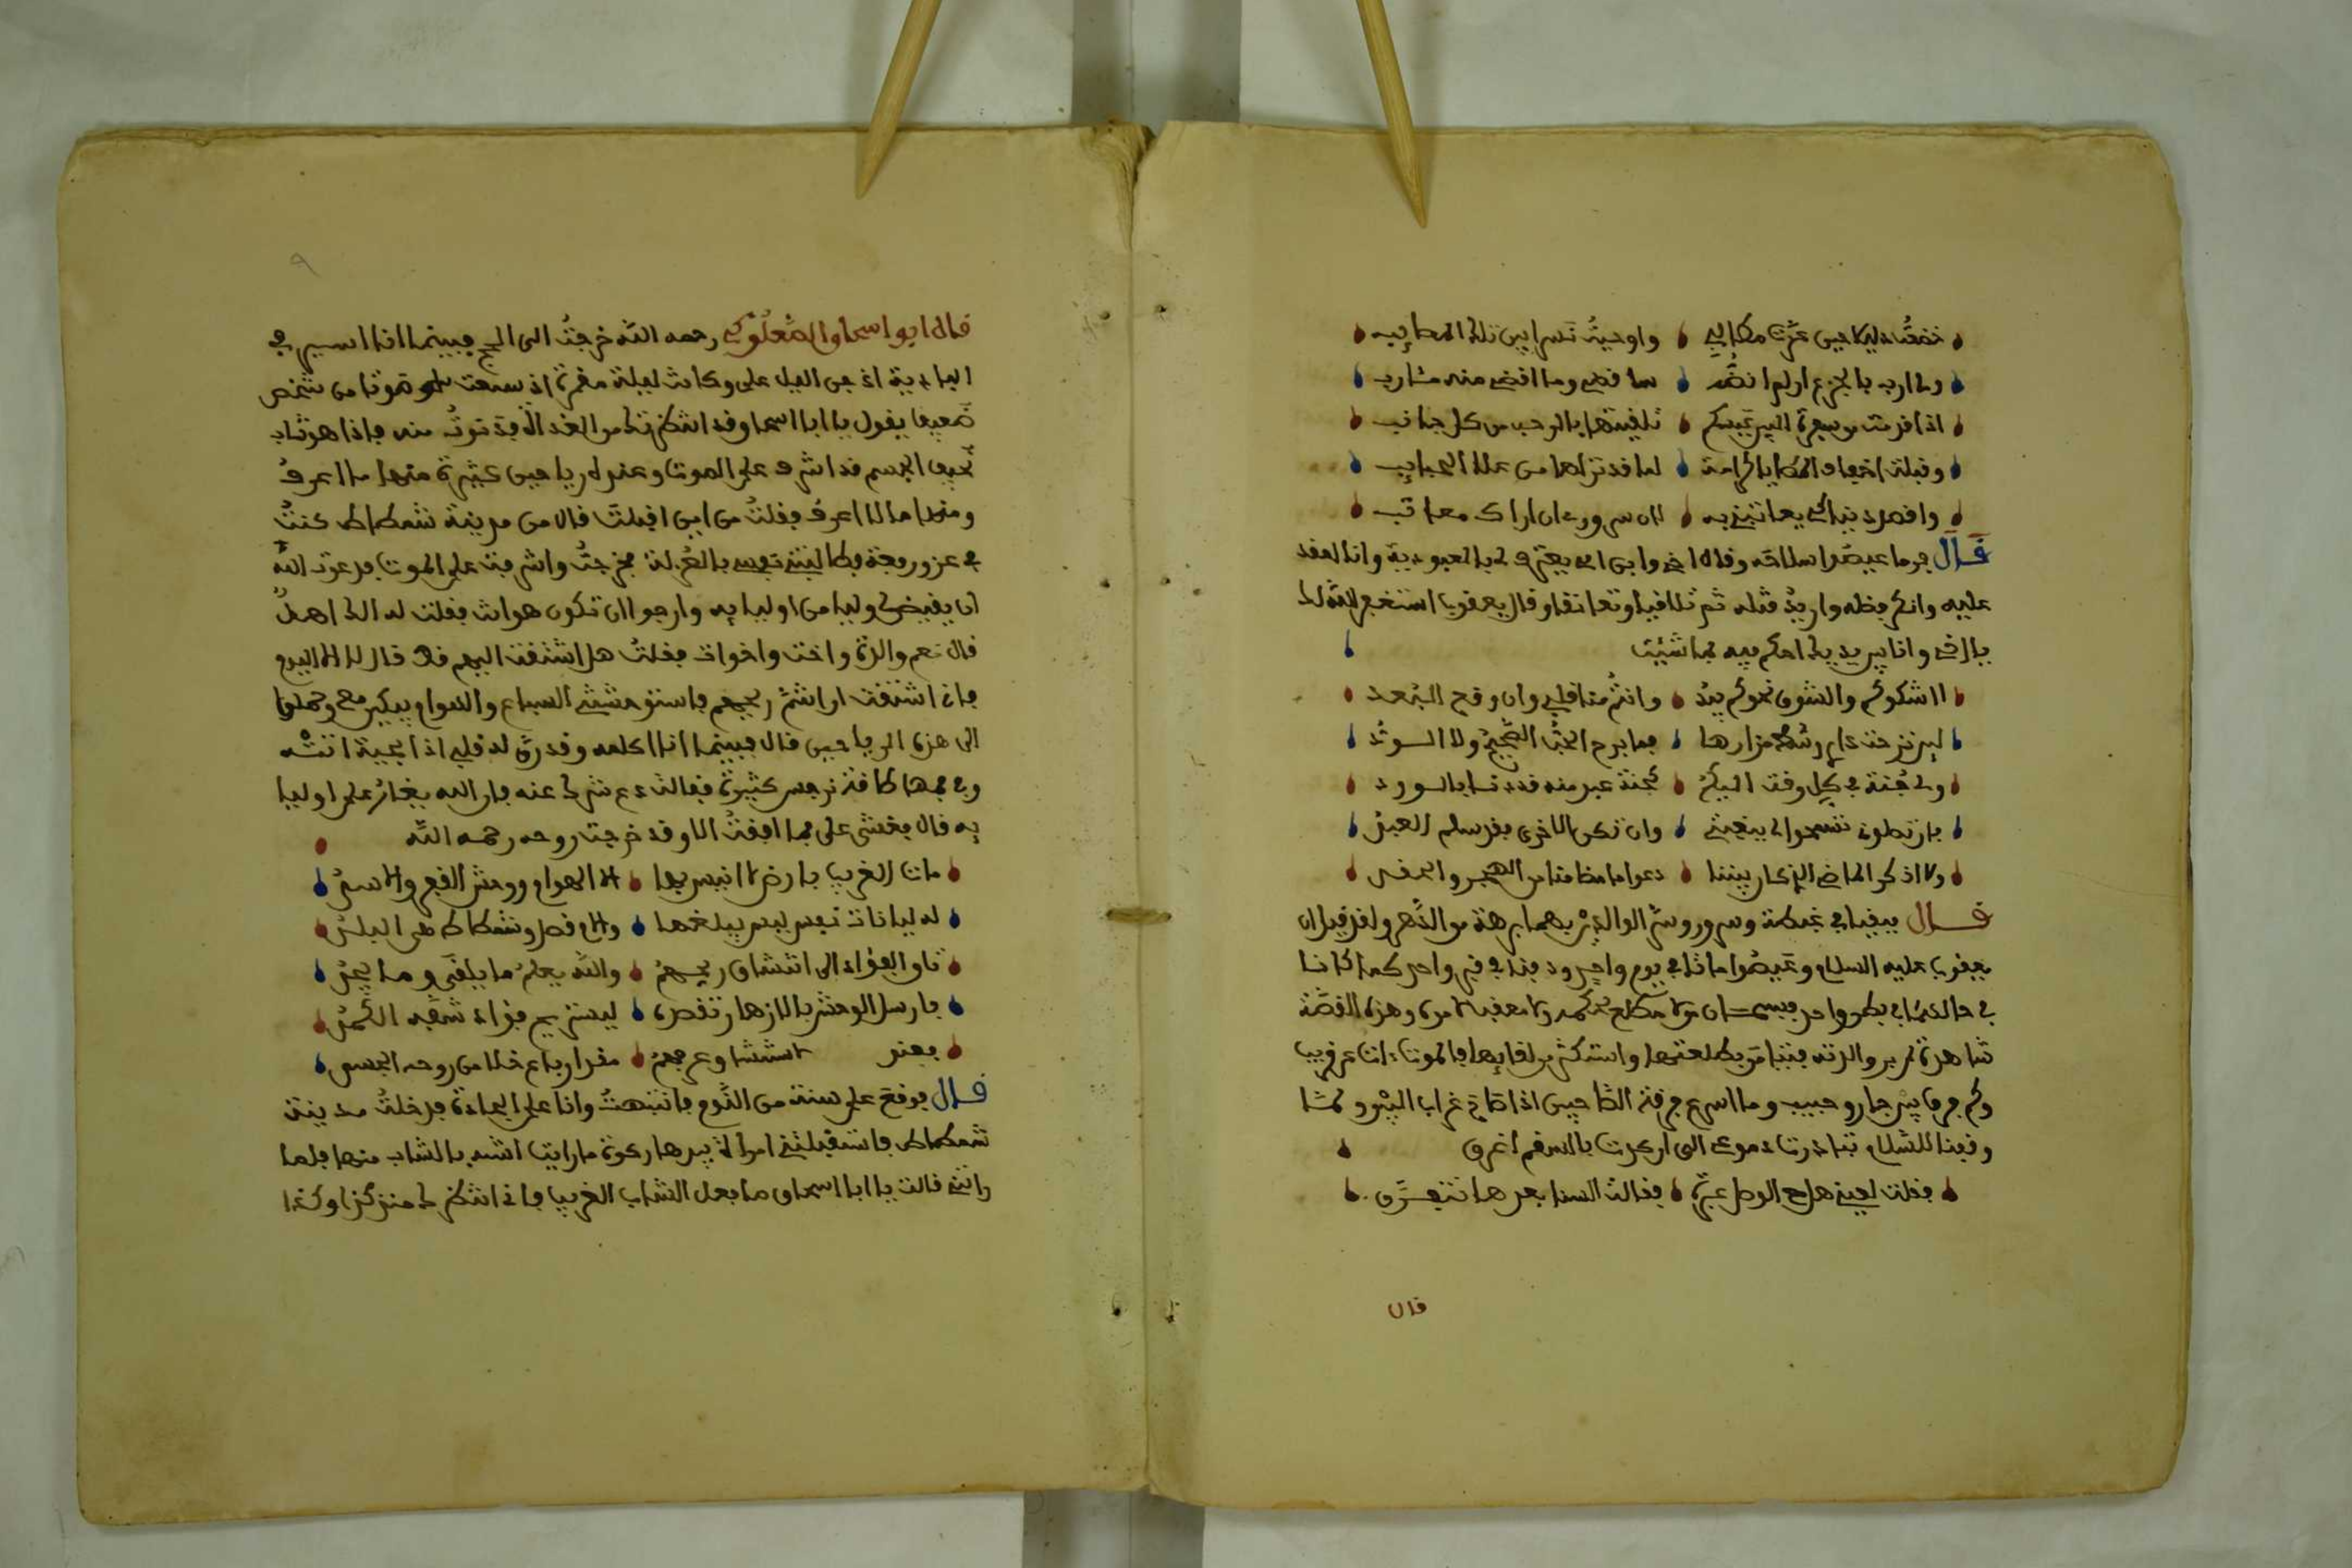 خضعت لديكم حين عزت مطالبي واوحيت تسرا بين تلك المطالب
ولي ارب بالجزع او لم انضه سا قضى وما اقضي منه مئارب
اذا فزت من سفرة البين عيسكم تلقيتها بالرحب من كل جانب
وقبلت اخفاف المطايا كرامة لما قد تراها من عند الحبايب
واقصد ذنبا كي يعاتبني به لان سروري ان اراك معاتب
قال فرما عيصوا سلاحه وقال اخي وابن امي يعترف لي بالعبودية وانا لعقد
عليه وانكر فضله واريد قتله ثم تلاقيا وتعانقا وقال يعقوب استغفر الله لك
يا اخي وانا بين يديك احكم فيه بما شئت
اشكوكم والشوق نحوكم بيد وانتم منا قلبي وان وقع البعد
لين نزحت دار وشط مزارها فما برح الحب الصحيح ولا الود
ولي جنة في كل وقت اليكم كجنة عبد منه قد نسا بالورد
فان تطوني تسمحوا لي ببغيتي وان تكن الاخرى فقد سلم العبد
ولا اذكر الماضي الذي كان بيننا دعوا ما مضا منا من الهجر والحقد
قال فبقيا في غبطة وسرور وستر الوالدين بهما برهة من الدهر ولقد قيل ان
يعقوب عليه السلام وعيصوا ماتا في يوم واحد ودفنا في قبر واحد كما كانا
في حال كنا في بطن واحد فسبحان من لا مطلع بحكمه ولا معقب لامره وهذه القصة
شاهدة لم ير والدته فتنبا من بطلعتها واستكثر من لقايها فالموت ذات عن قريب
وكم فرق بين جار وحبيب وما اسرع فرقة الصاحبين اذا صاح غراب البين ولمشا
وقفنا للسلام تبادرت دموعي الى ان كدت بالدمع اغرق
فقلت لعيني هل مع الوصل عبرة فقالت السنا بعدها نتفرق
قال
٩
قال ابو اسحاق الصعلوكي رحمه الله خرجت الى الحج فبينما انا اسير في
البادية اذ جن اليل علي وكانت ليلة مقمرة اذ سمعت صوتا من شخص
ضعيف يقول يا ابا اسحاق قد انتظرتك من الغد الا فدنوت منه فاذا هو شاب
نحيف الجسم قد اشرف على الموت وعنده رياحين كثيرة منها ما اعرف
ومنها ما لا اعرف فقلت من اين اقبلت قال من مدينة شمطاط كنت
في عز ورفعة فطالبتني نفسي بالعزلة فخرجت واشرفت على الموت فدعوت الله
ان يقيض لي وليا من اوليايه وارجوا ان تكون هو انت فقلت له الك اهل
قال نعم والدة واخت واخوات فقلت هل اشتقت اليهم قط قال لا الا اليوم
فاني اشتقت ان اشم ريحهم فاستوحشتني السباع والهوام وبكين معي وحملوا
الى هذه الرياحين قال فبينما انا اكلمه وقد رق له قلبي اذا بحية اتته
وفي فمها طاقة نرجس كثيرة فقالت دع شرك عنه فان الله يغار على اوليا
يه قال فغشي علي فما افقت الا وقد خرجت روحه رحمه الله
مات الغريب بارض لا انيس بها الا الهوام ووحش القفر والاسد
له لبانات نفس ليس يبلغها والاقصد وشمطاط هي البلد
تاق الفؤاد الى انتشاق ريحهم والله يعلم ما يلقى وما يجد
فارسل الوحش بالازهار تقصده ليستريح فؤاد شفه الكمد
فعند استنشا وعرفهم مقدار باع خلا من روحه الجسد
قال فوقع علي سنة من النوم فانتبهت وانا على الجادة فدخلت مدينة
شمطاط فاستقبلتني امراة بيدها ركوة ما رايت اشبه بالشاب منها فلما
راتني قالت يا ابا اسحاق ما فعل الشاب الغريب فاني انتظرك منذ كذا وكذا